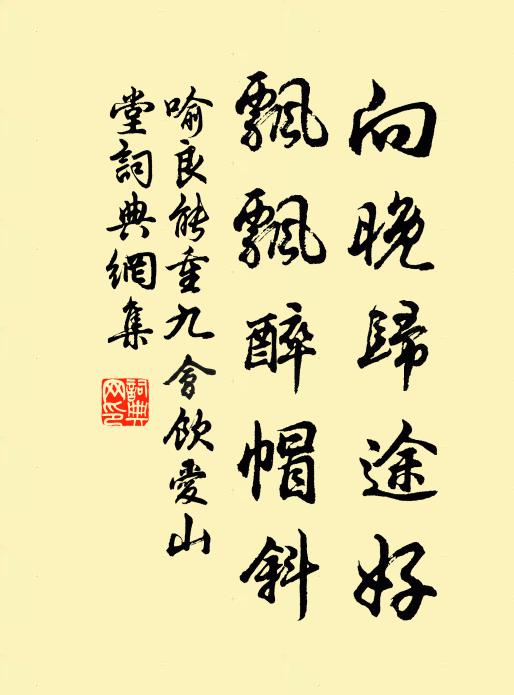 向晚歸途好
飄飄醉帽斜
喻良能重九會飲愛山
堂詞典網集
詞典
网印